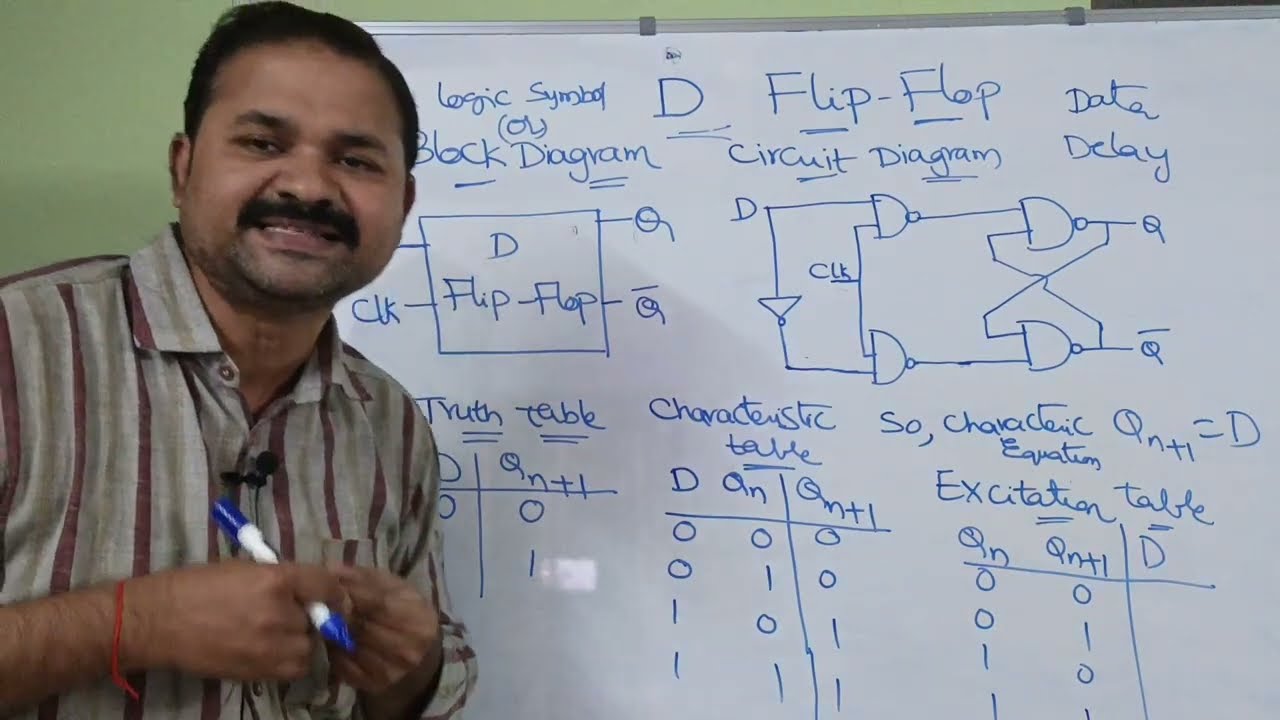 Logic Symbol
(or)
Block Diagram
D Flip-Flop
Data
Delay
Circuit Diagram
D
Flip-Flop
Clk
Q
Q̅
D
Clk
Q
Q̅
Truth table
D Qn+1
0 0
1
Characteristic
table
D Qn Qn+1
0 0 0
0 1 0
1 0 1
1 1 1
So, Characteric Qn+1 = D
Equation
Excitation table
Qn Qn+1 D
0 0
0 1
1 0
1 1